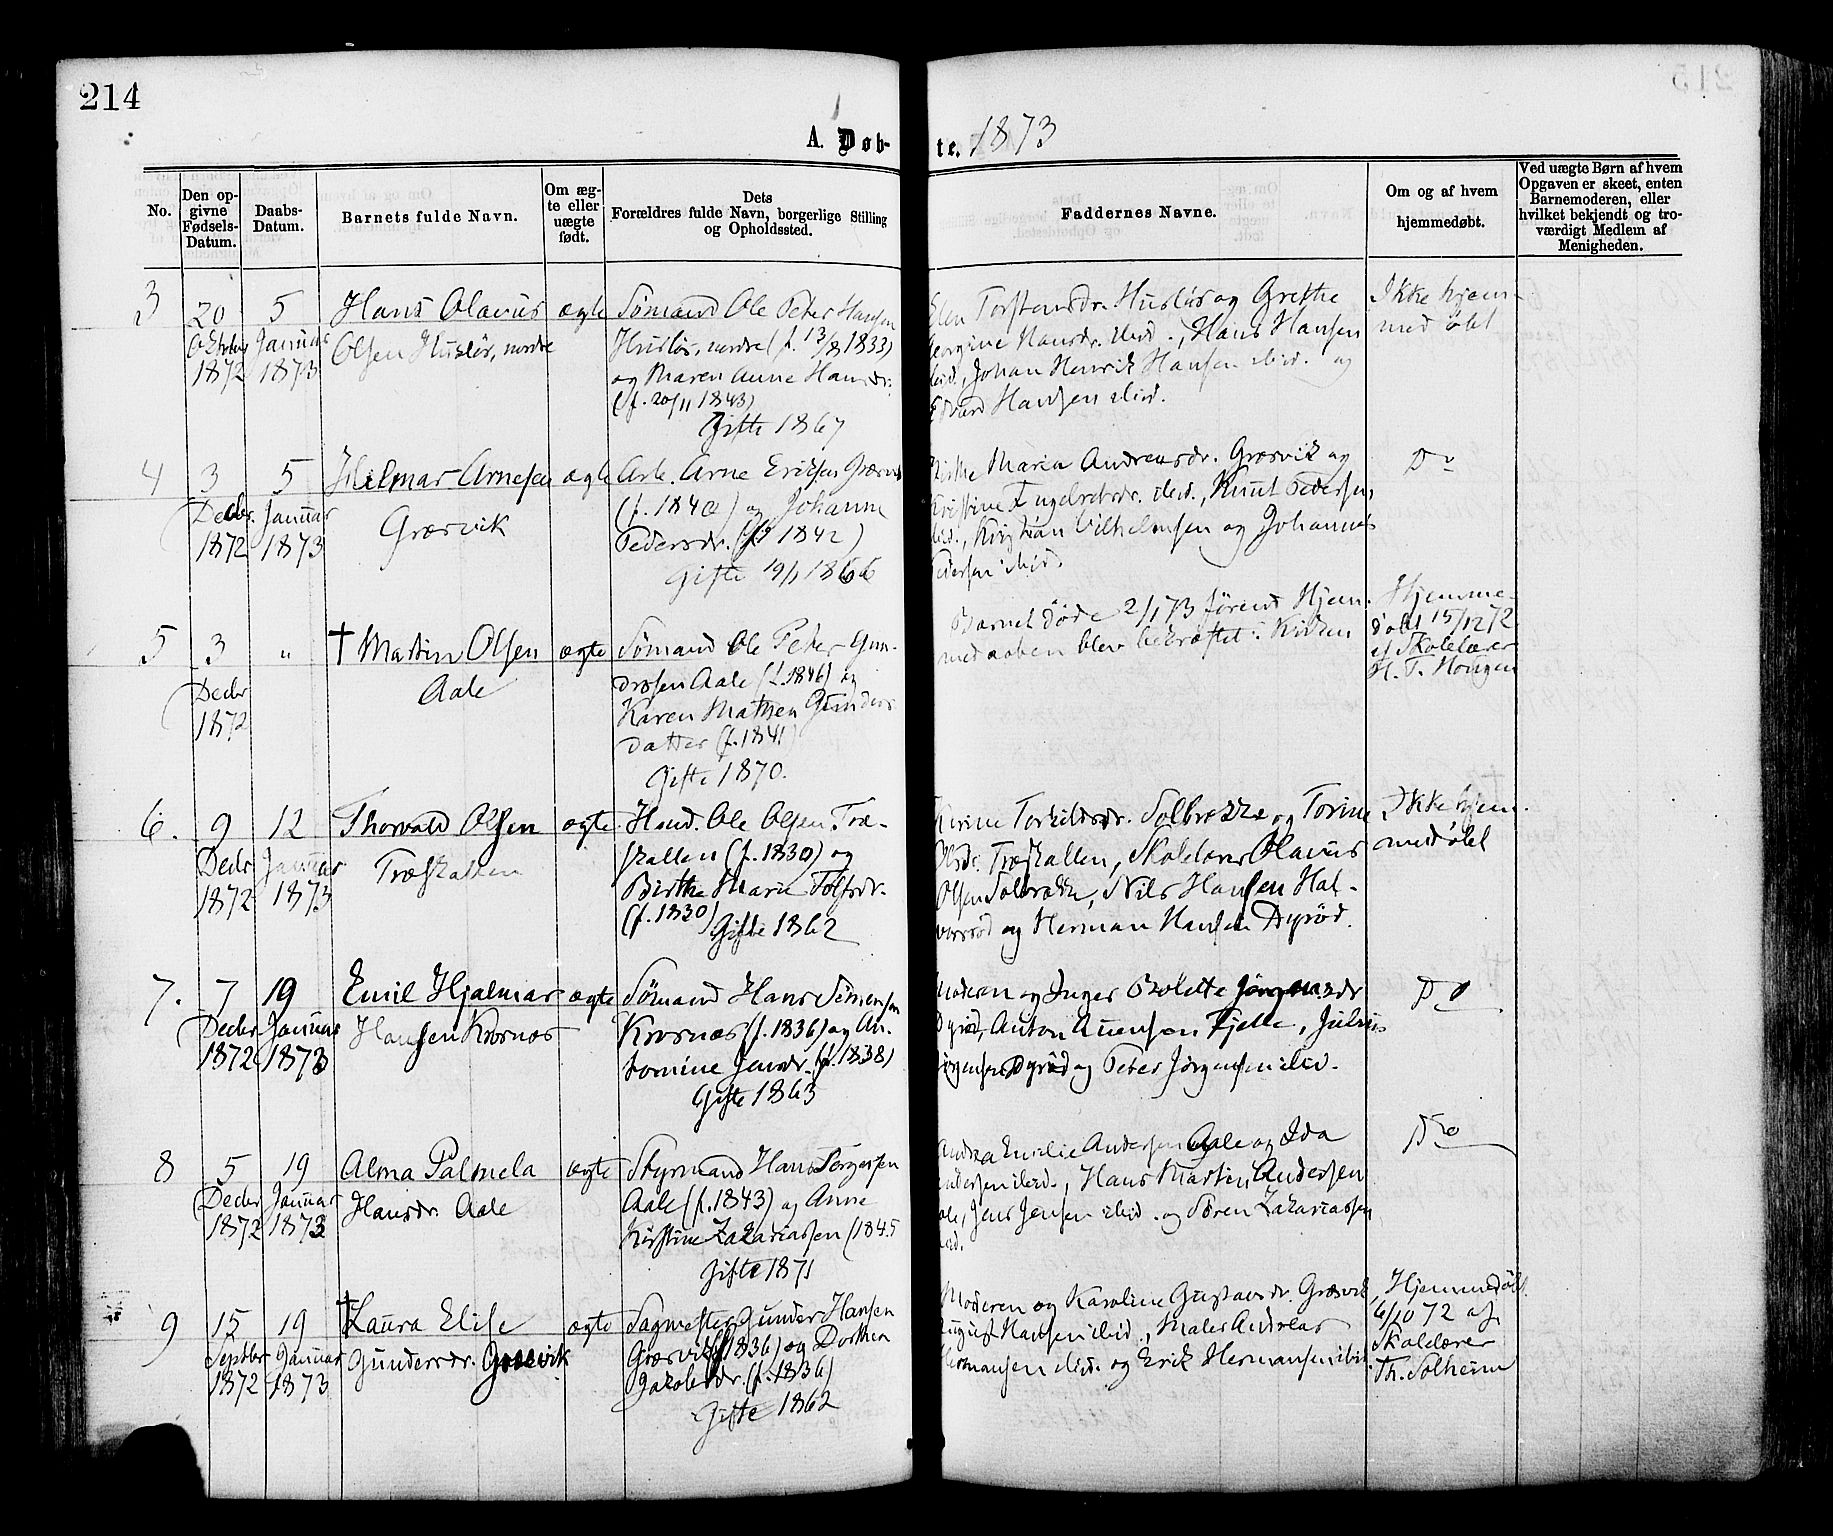 214
A. Døb-
te. 1873
No.
Den op-
givne
Fødsels-
Datum.
Daabs-
Datum.
Barnets fulde Navn.
Om æg-
te eller
uægte
født.
Dets
Forældres fulde Navn, borgerlige Stilling
og Opholdssted.
Faddernes Navne.
Om og af hvem
hjemmedøbt.
Ved uægte Børn af hvem
Opgaven er skeet, enten
Barnemoderen, eller
hvilket bekjendt og tro-
værdigt Medlem af
Menigheden.
3
20
Oktober
1872
5
Januar
1873
Hans Olavus
Olsen Husløs, nordre
ægte
Sømand Ole Peter Hansen
Husløs, nordre (f. 13/8 1833)
og Maren Anne Hansdr.
(f. 20/11 1843)
Gifte 1867
Elen Torstensdr. Husløs og Grethe
Georgine Hansdr. ibid., Hans Hansen
ibid., Johan Henrik Hansen ibid. og
Edvard Hansen ibid.
Ikke hjem-
medøbt
4
3
Decbr.
1872
5
Januar
1873
Hilmar Arnesen
Græsvik
ægte
Arb. Arne Eriksen Græsvik
(f. 1840) og Johanne
Pedersdr. (f. 1842)
Gifte 19/1 1866
Maria Andreasdr. Græsvik og
Kristine Engebretsdr. ibid., Knut Pedersen
ibid., Kristian Vilhelmsen og Johannes
Pedersen ibid.
Do
5
3
Decbr
1872
"
† Martin Olsen
Aale
ægte
Sømand Ole Peter Gun-
dersen Aale (f. 1846) og
Karen Mathea Gunders-
datter (f. 1841)
Gifte 1870.
Barnet døde 2/1 73 førend Hjem-
medaaben blev bekræftet i Kirken
Hjemme-
døbt 15/12 72
af Skolelærer
H. T. Hougen
6.
9
Decbr
1872
12
Januar
1873
Thorvald Olsen
Træskallen
ægte
Husd. Ole Olsen Træ-
skallen (f. 1830) og
Birthe Marie Tolfsdr.
(f. 1830)
Gifte 1862
Karine Torkildsdr. Solbrække og Torine
Olsdr. Træskallen, Skolelærer Olavus
Olsen Solbrække, Nils Hansen Hal-
vorsrød og Herman Hansen Dyrød.
Ikke hjem-
medøbt
7.
7
Decbr
1872
19
Januar
1873
Emil Hjalmar
Hansen Krosnæs
ægte
Sømand Hans Simensen
Krosnæs (f. 1836) og An-
tomine Jensdr. (f. 1838)
Gifte 1863
Moderen og Inger Bolette Jørgensdr
Dyrød, Anton Auensen Fjelle, Julius
Jørgensen Dyrød og Peter Jørgensen ibid.
Do
8
5
Decbr
1872
19
Januar
1873
Alma Palmela
Hansdr. Aale
ægte
Styrmand Hans Torgersen
Aale (f. 1843) og Anne
Kirstine Zakariassen (1845
Gifte 1871
Andrea Emilie Andersen Aale og Ida
Andersen ibid., Hans Martin Andersen
Aale, Jens Jensen ibid. og Søren Zakariassen
ibid.
Do
9
15
Septbr
1872
19
Januar
1873
† Laura Elise
Gundersdr. Græsvik
ægte
Sagmester Gunder Hansen
Græsvik (f. 1836) og Dorthea
Jakobsdr. (f. 1836)
Gifte 1862
Moderen og Karoline Gustavsdr. Græsvik,
August Hansen ibid., Maler Andreas
Hermansen ibid. og Erik Hermansen ibid.
Hjemmedøbt
6/10 72 af
Skolelærer
Th. Solheim